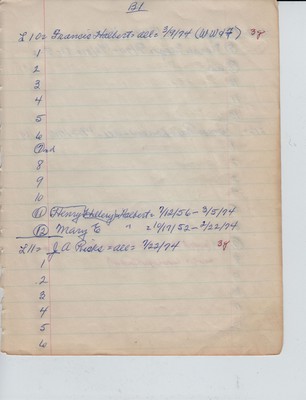 B1
L 10 = Francis Halbert = del = 3/9/74 (W.W. 34
1
2
3
4
5
6
8
9
10
11 Henry Halbert = 7/12/56 - 3/5/74
12 Mary E " = 10/17/52 - 2/22/74
L 11 = J A Ricks = del = 7/23/74 34
1
2
3
4
5
6